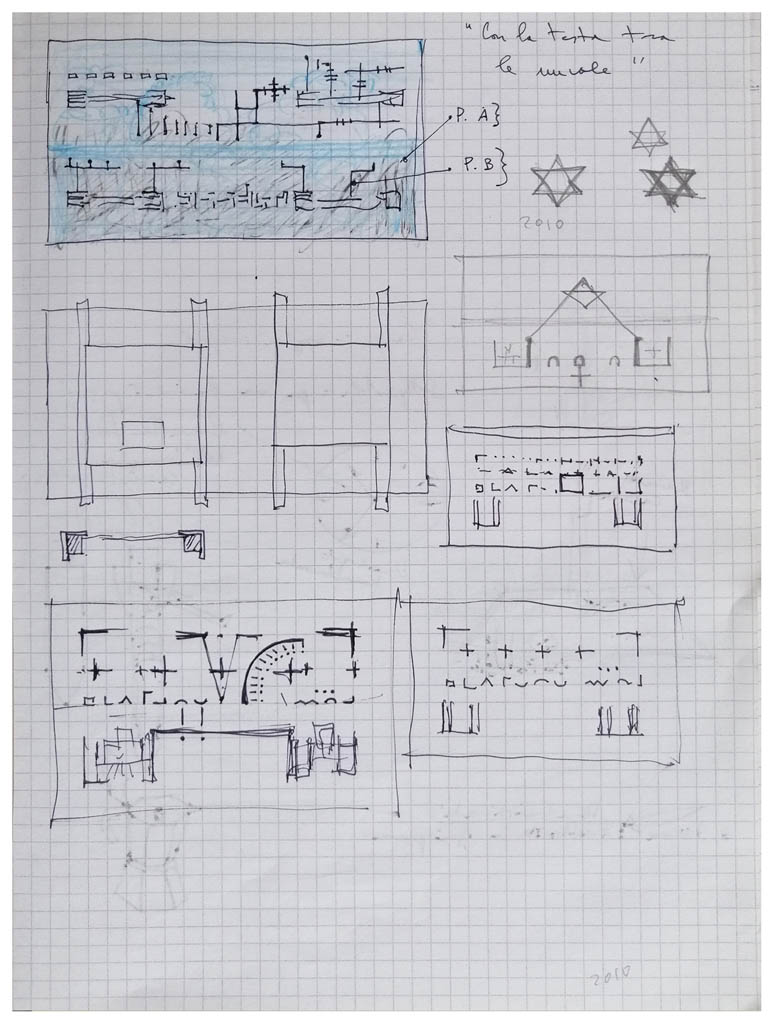 "Con la testa tra
le nuvole"
P. A}
P. B}
2010
2010